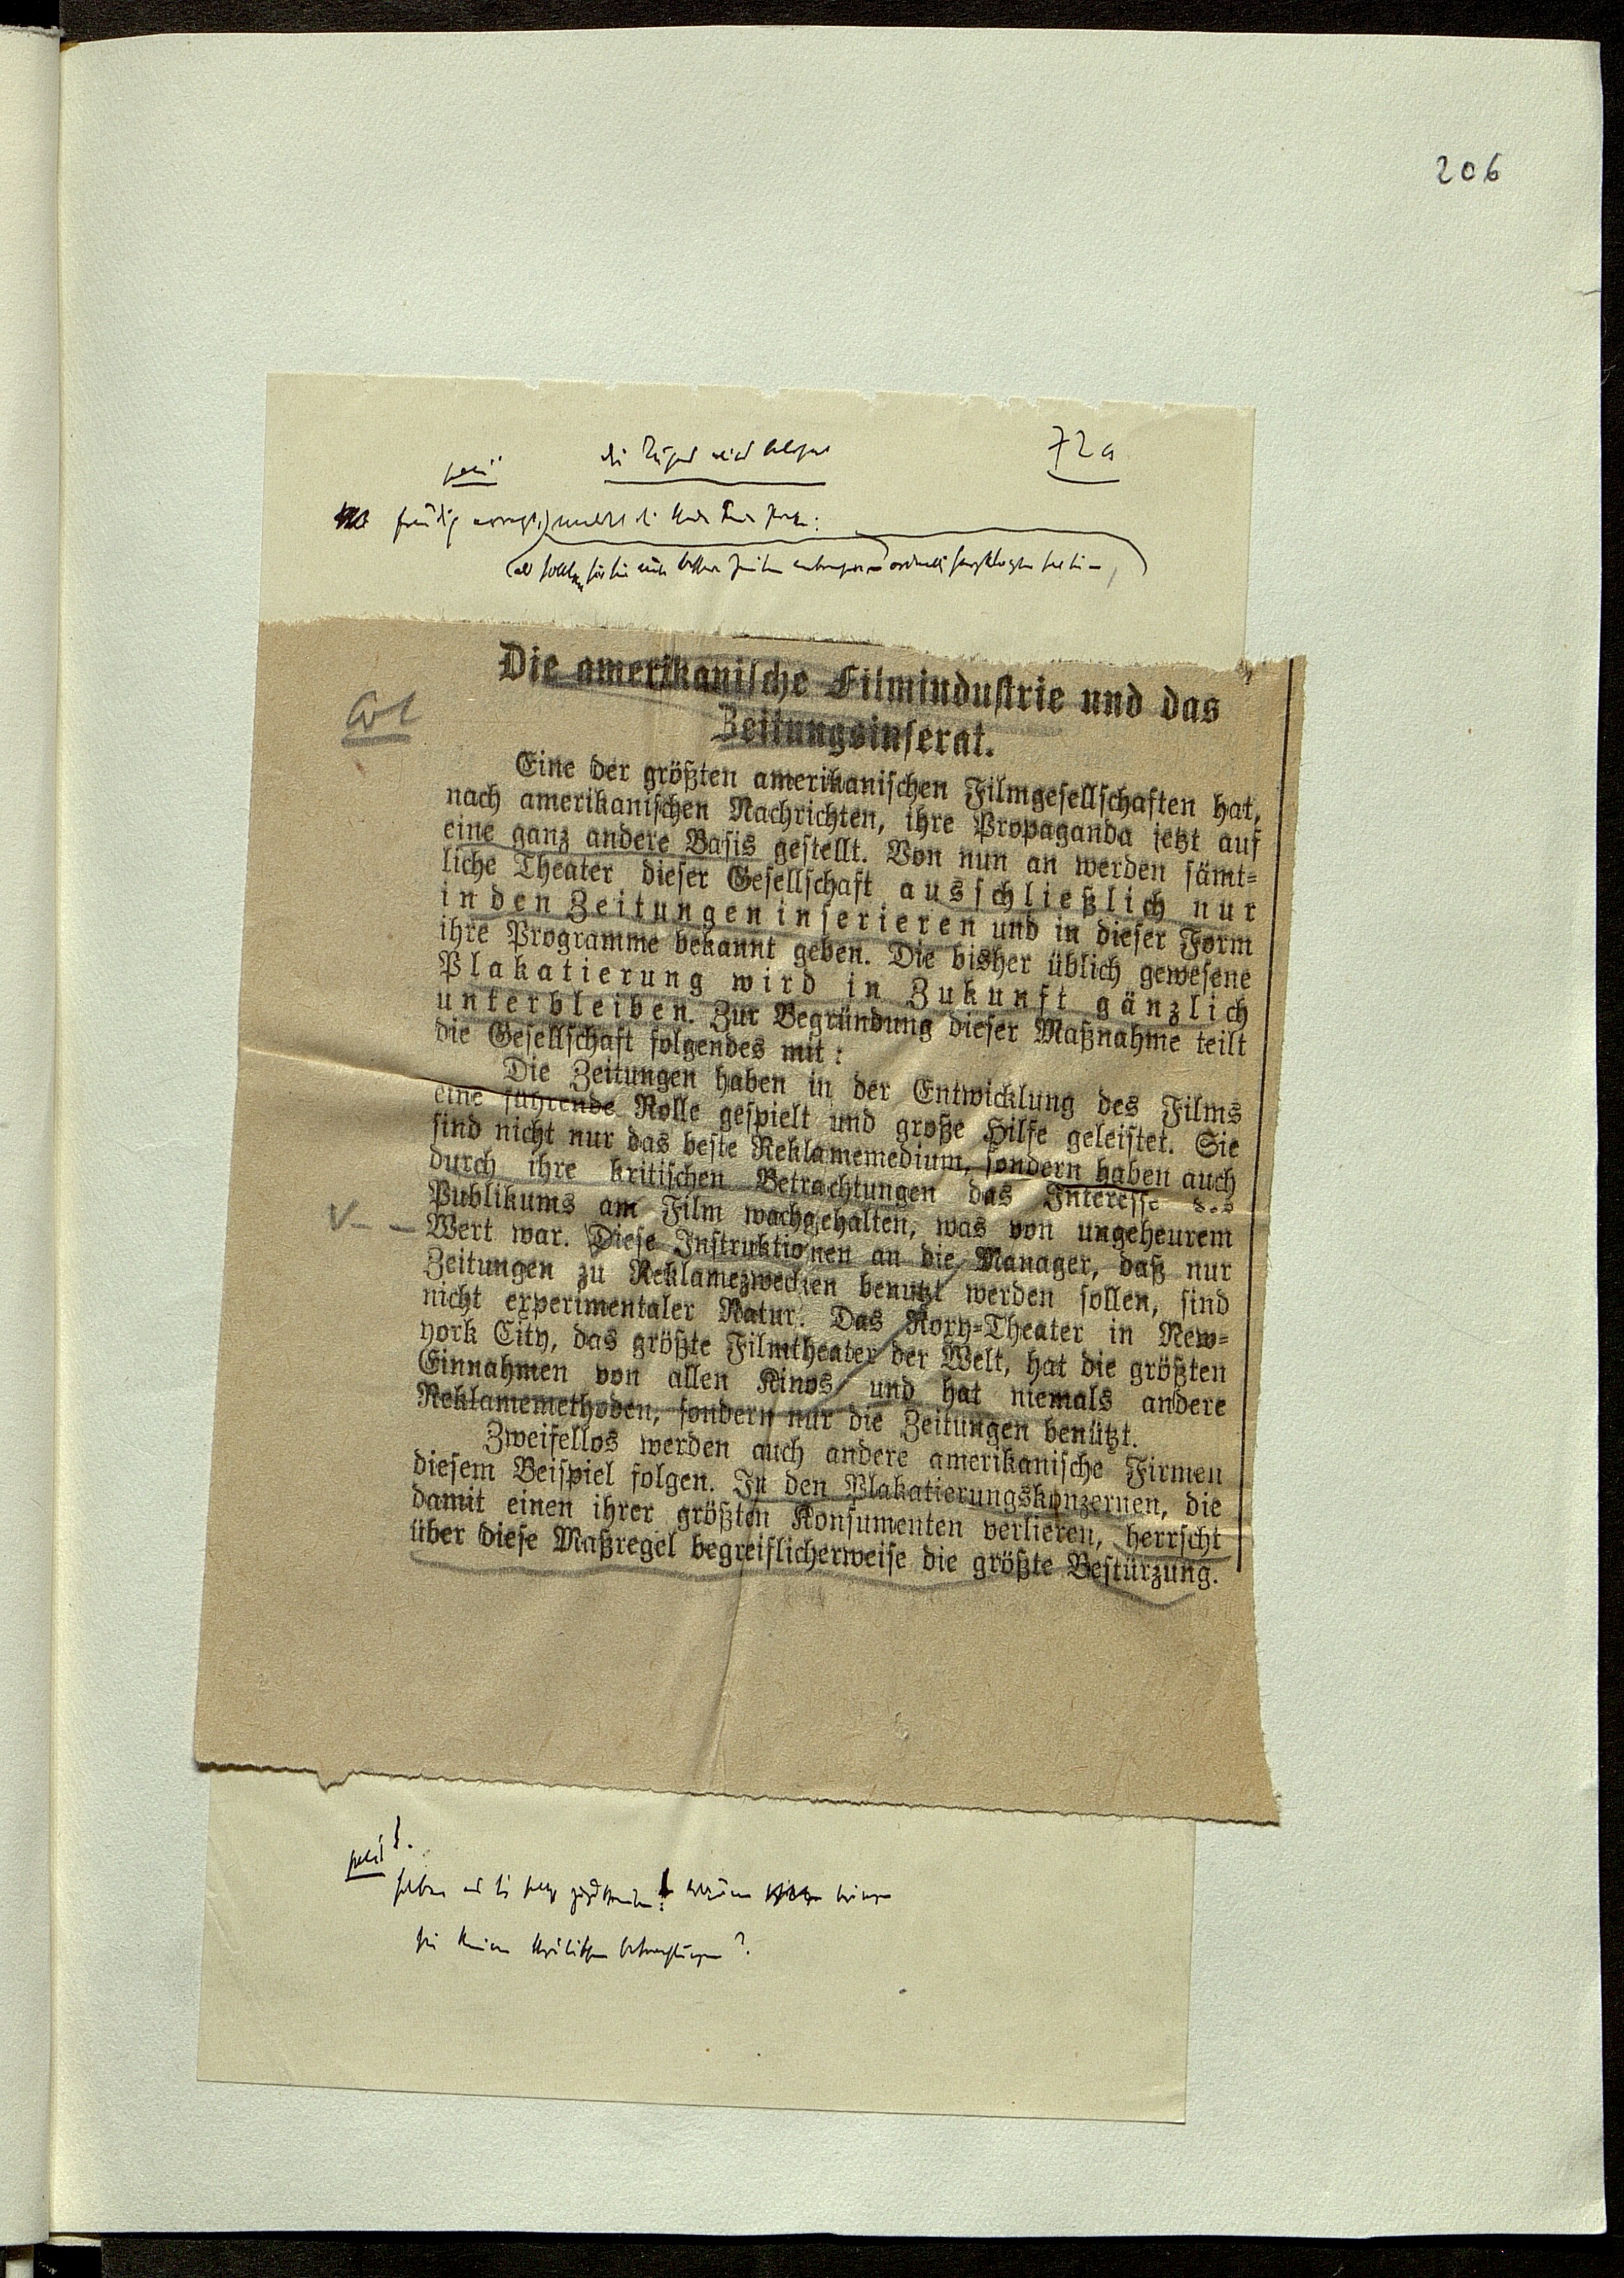 206
72a
Die amerikanische Filmindustrie und das
Zeitungsinserat.
Eine der größten amerikanischen Filmgesellschaften hat,
nach amerikanischen Nachrichten, ihre Propaganda jetzt auf
eine ganz andere Basis gestellt. Von nun an werden sämt-
liche Theater dieser Gesellschaft ausschließlich nur
in den Zeitungen inserieren und in dieser Form
ihre Programme bekannt geben. Die bisher üblich gewesene
Plakatierung wird in Zukunft gänzlich
unterbleiben. Zur Begründung dieser Maßnahme teilt
die Gesellschaft folgendes mit:
Die Zeitungen haben in der Entwicklung des Films
eine führende Rolle gespielt und große Hilfe geleistet. Sie
sind nicht nur das beste Reklamemedium, sondern haben auch
durch ihre kritischen Betrachtungen das Interesse des
Publikums am Film wachgehalten, was von ungeheurem
Wert war. Diese Instruktionen an die Manager, daß nur
Zeitungen zu Reklamezwecken benutzt werden sollen, sind
nicht experimentaler Natur. Das Roxy-Theater in New-
york City, das größte Filmtheater der Welt, hat die größten
Einnahmen von allen Kinos und hat niemals andere
Reklamemethoden, sondern nur die Zeitungen benützt.
Zweifellos werden auch andere amerikanische Firmen
diesem Beispiel folgen. In den Plakatierungskonzernen, die
damit einen ihrer größten Konsumenten verlieren, herrscht
über diese Maßregel begreiflicherweise die größte Bestürzung.